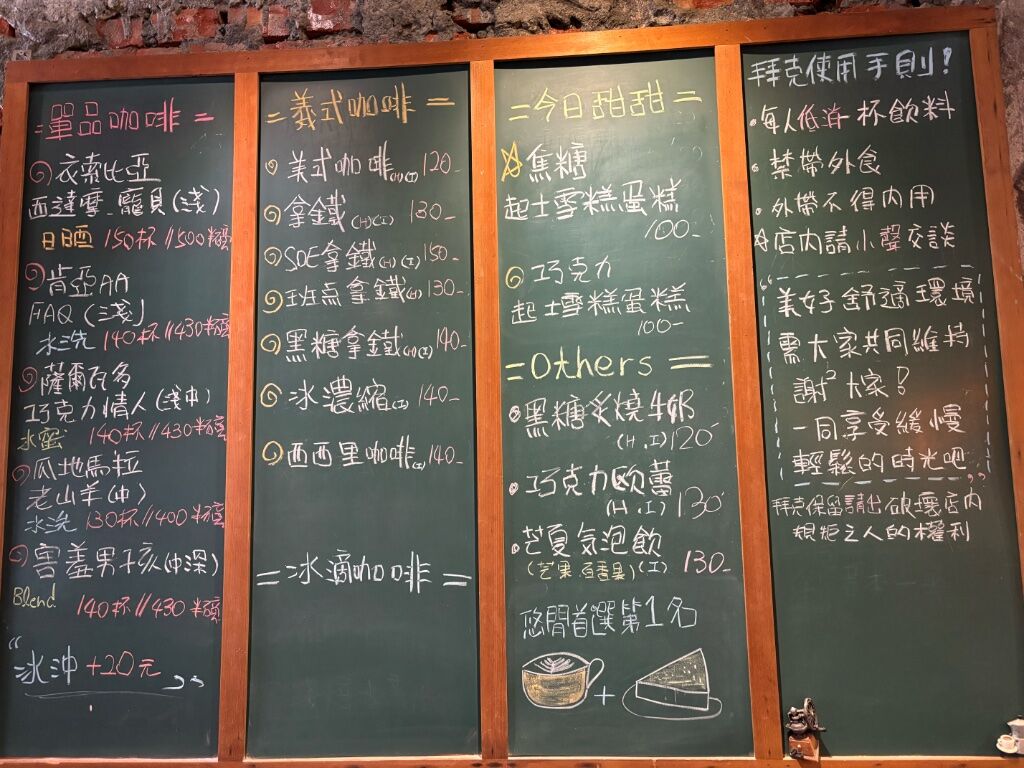 =單品咖啡=
衣索比亞
西達摩_寵貝(淺)
日晒 150杯//500半磅
肯亞AA
FAQ(淺)
水洗 140杯//430半磅
薩爾瓦多
巧克力情人(淺中)
水蜜 140杯//430半磅
瓜地馬拉
老山羊(中)
水洗 130杯//400半磅
害羞男孩(中深)
Blend 140杯//430半磅
"冰沖+20元"
=義式咖啡=
美式咖啡(H)(I) 120-
拿鐵(H)(I) 130-
SOE拿鐵(H)(I) 150-
班点拿鐵(H) 130-
黑糖拿鐵(H)(I) 140-
冰濃縮(I) 140-
西西里咖啡(I) 140-
=冰滴咖啡=
=今日甜甜=
☆焦糖
起士雪糕蛋糕
100-
巧克力
起士雪糕蛋糕
100-
=Others=
黑糖炙燒牛奶
(H.I)120
巧克力歐蕾
(H.I)130
芒夏気泡飲
(芒果 百香果)(I) 130-
悠閒首選第1名
+
拜克使用手則!
•每人低消一杯飲料
•禁帶外食
•外帶不得內用
☆店內請小聲交談
"美好舒適環境
需大家共同維持
謝²大家!
一同享受緩慢
輕鬆的時光吧"
拜克保留請出破壞店內
規矩之人的權利